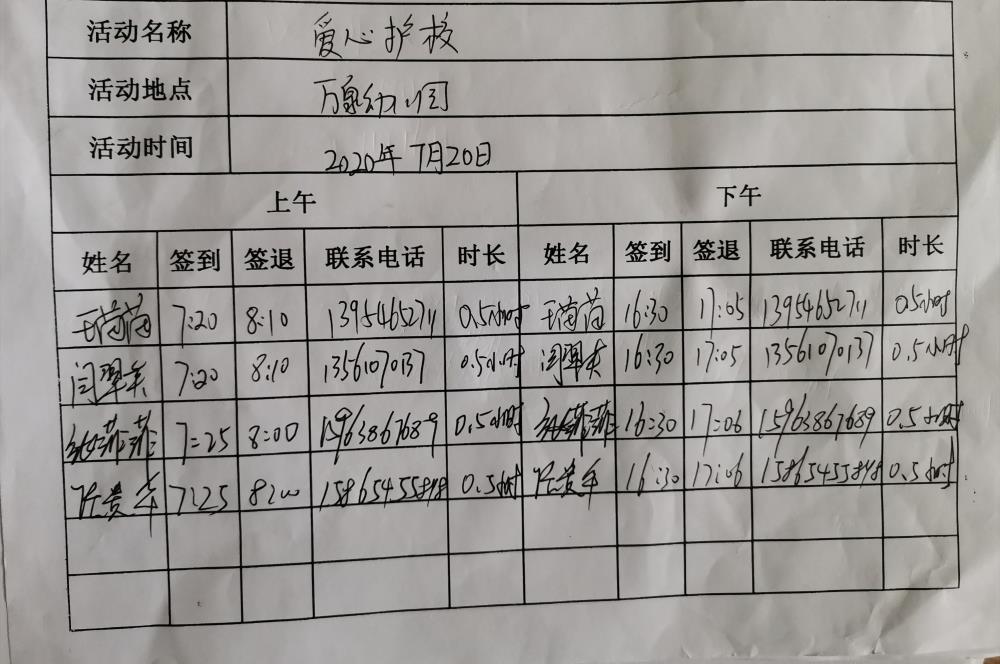 活动名称 爱心护校
活动地点 万泉幼儿园
活动时间 2020年7月20日
上午 下午
姓名 签到 签退 联系电话 时长 姓名 签到 签退 联系电话 时长
7:20 8:10 13954652711 0.5小时 16:30 17:05 13954652711 0.5小时
闫翠 7:20 8:10 13561070137 0.5小时 闫翠 16:30 17:05 13561070137 0.5小时
7:25 8:00 15963867689 0.5小时 16:30 17:06 15963867689 0.5小时
7:25 8:00 0.5小时 16:30 17:06 0.5小时